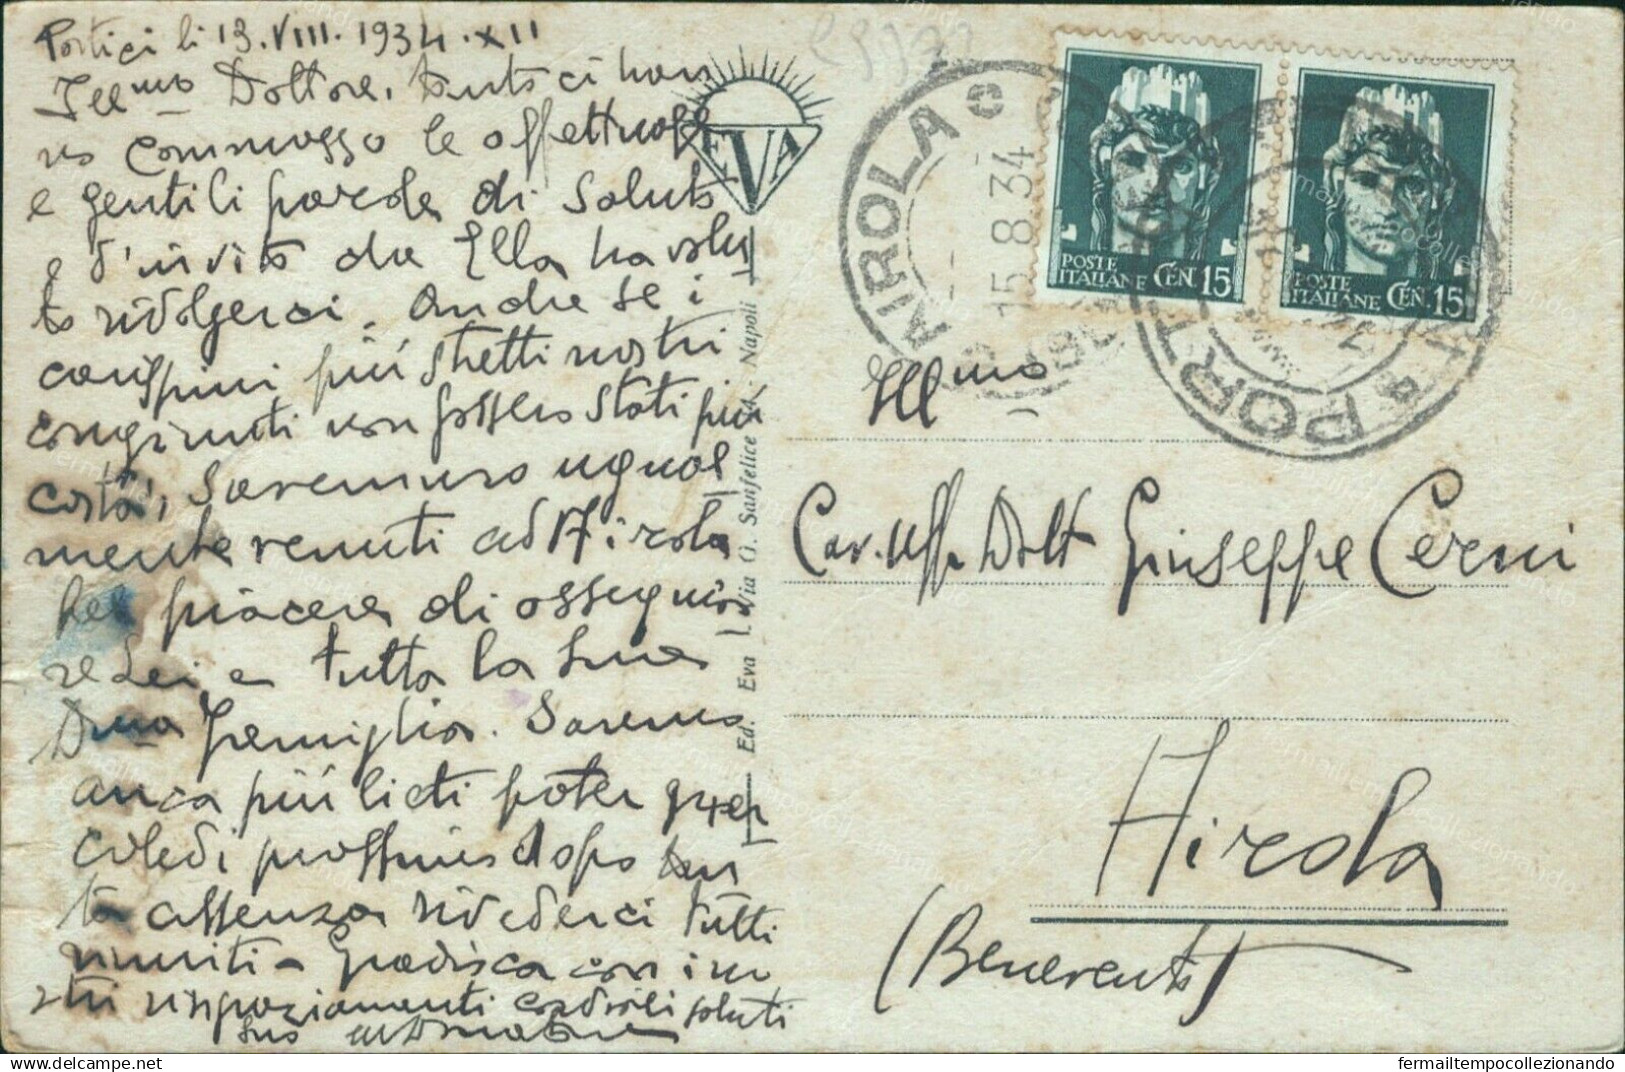 Portici li 13.VIII.1934.XII
Ill.mo Dottore, tanto ci han
no commosso le affettuose
e gentili parole di saluto
e d'invito che Ella ha volu
to rivolgerci. Anche se i
più stretti nostri
congiunti non fossero stati più
costà, saremmo ugual
mente venuti ad Airola
per piacere di ossequia
re Lei e tutta la Sua
D.ma Famiglia. Saremo
anca più lieti poter
coledi prossimo dopo tan
ta assenza rivederci tutti
riuniti - Gradisca con i no
stri ringraziamenti cordiali saluti
Suo
EVA
Ed. Eva Via G. Sanfelice Napoli
AIROLA
15.8.34
PORT
POSTE ITALIANE CEN. 15
POSTE ITALIANE CEN. 15
Ill mo
Cav. Uff. Dott Giuseppe Cerni
Airola
(Benevento)
fermailtempocollezionando